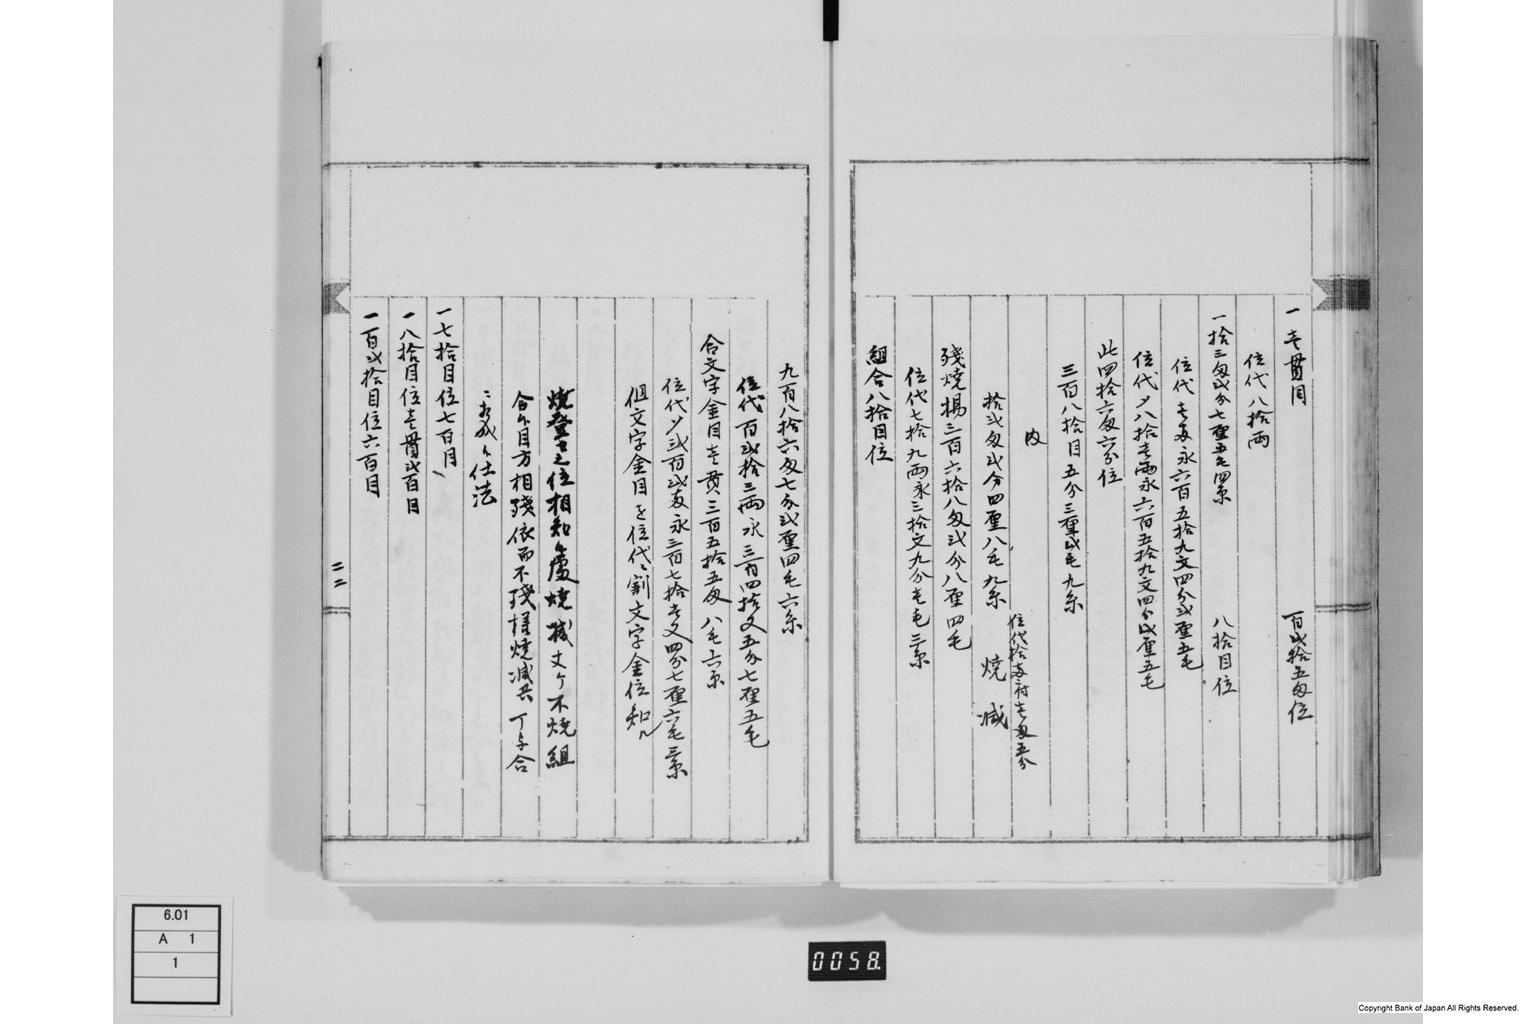 一壱貫目 百弐拾五匁位
位代八拾両
一拾三匁弐分七厘五毛四糸 八拾目位
位代壱両永六百五拾九文四分弐厘五毛
位代〆八拾壱両永六百五拾九文四分弐厘五毛
此四拾六匁六分位
三百八拾目五分三厘弐毛九糸
内
拾弐匁弐分四厘八毛九糸 焼減
位代拾両ニ付壱匁五分
残焼揚三百六拾八匁弐分八厘四毛
位代七拾九両永三拾文九分壱毛三糸
組合八拾目位
九百八拾六匁七分弐厘四毛六糸
位代百弐拾三両永三百四拾文五分七厘五毛
合文字金目壱貫三百五拾五匁八毛六糸
位代〆弐百弐両永三百七拾壱文四分七厘六毛三糸
但文字金目を位代ニ割文字金位知ル
焼登之位相知候処焼減丈ケ不焼組
合候目方相残依而不残様焼減共丁と合
ニ相成候仕法
一七拾目位七百目
一八拾目位壱貫弐百目
一百弐拾目位六百目
二二
6.01
A 1
1
0058.
Copyright Bank of Japan All Rights Reserved.